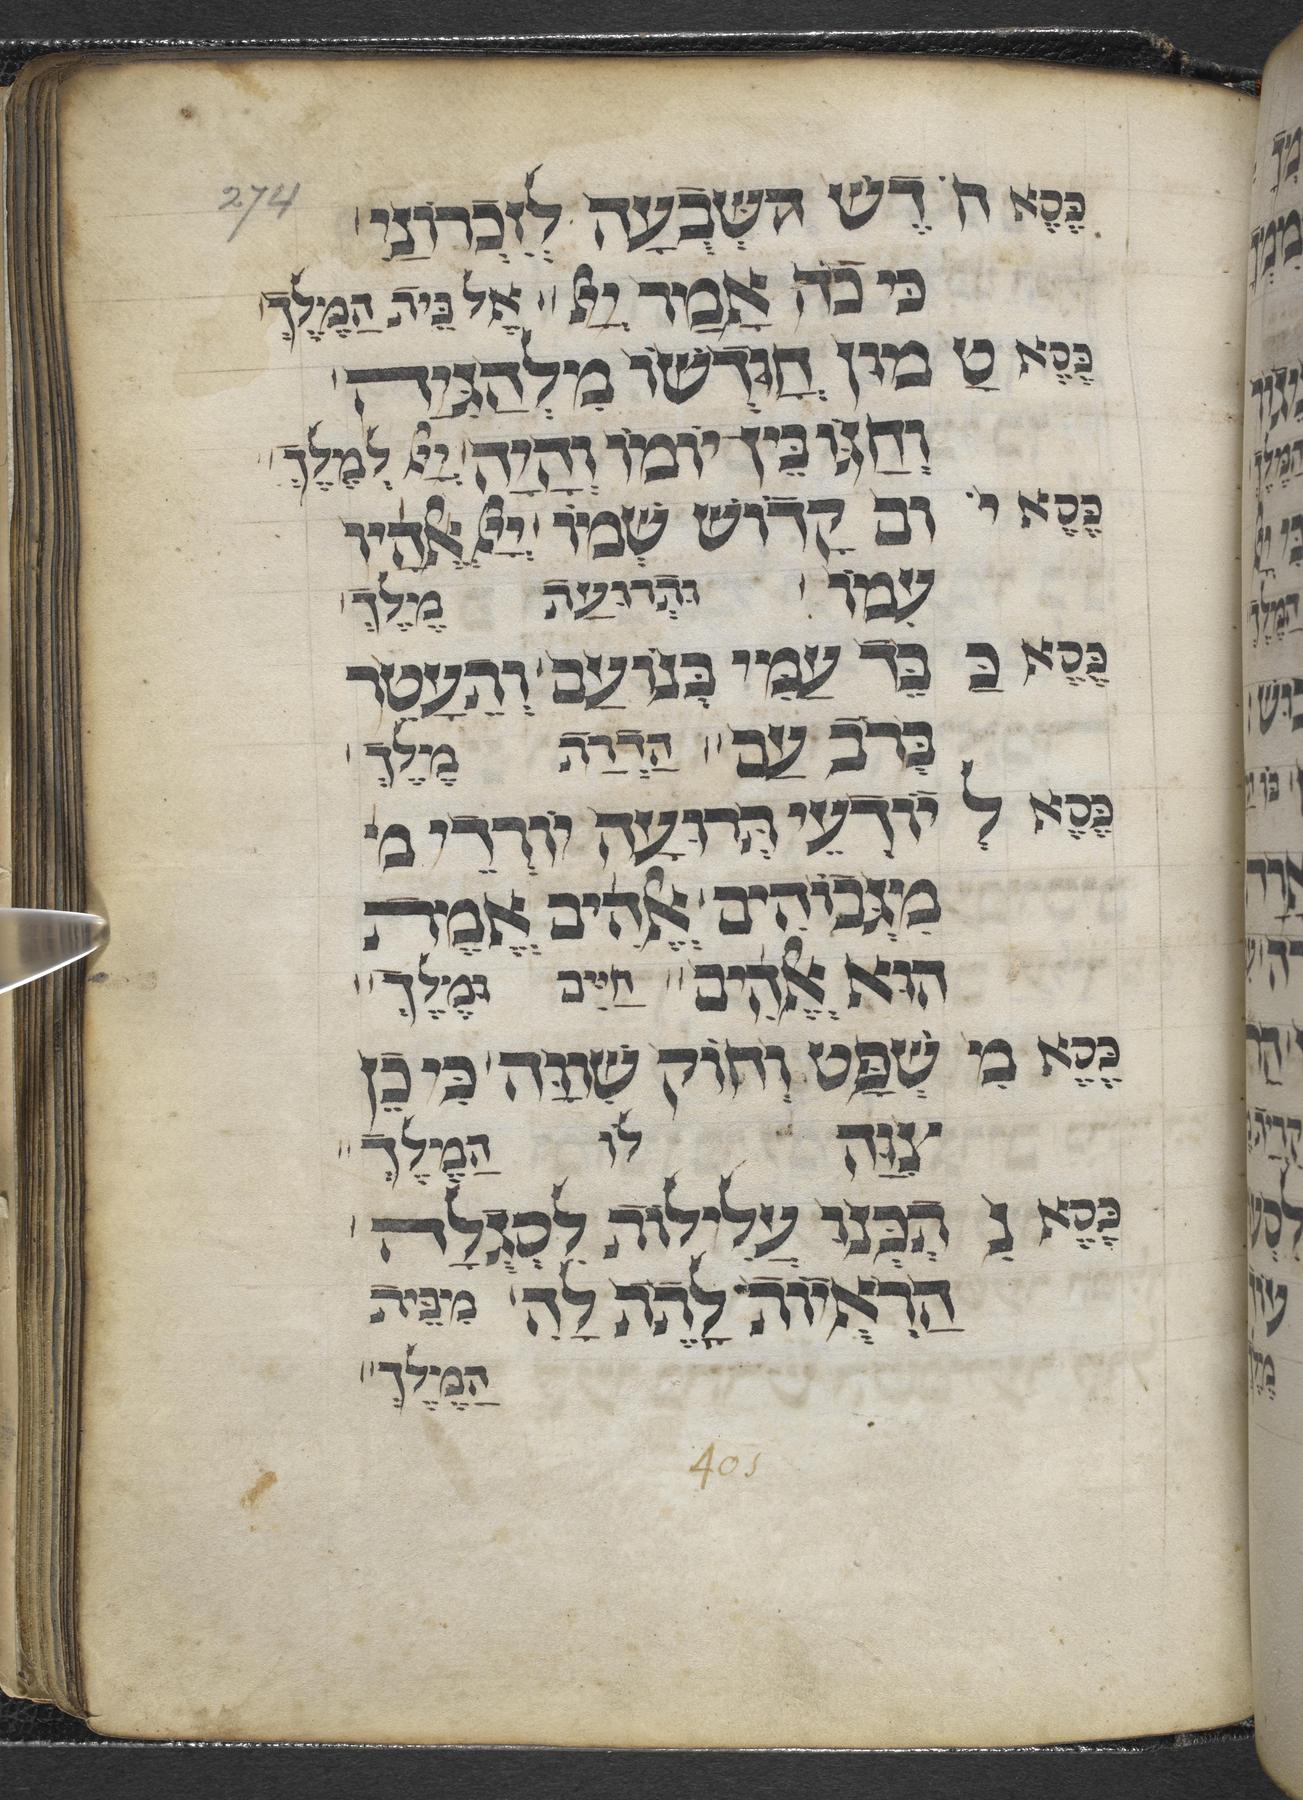 274
בַּכֶּסֶא חֹ דֶשׁ הַשְּׁבָעָה לְזִכְרוֹנַיִ
כִּי כֹה אָמַר יְיָ אֶל בֵּית הַמֶּלֶךְ
בַּכֶּסֶא טָ מוּן חֲדָשׁוֹ מִלְהַגִּיהַּ
וְחַגּוֹ בֵּין יוֹמוֹ וְהָיָה יְיָ לְמֶלֶךְ
בַּכֶּסֶא י וּם קָדוֹשׁ שְׁמוֹ יְיָ אֱלֹהָיו
עִמּוֹ וּתְרוּעַת מֶלֶךְ
בַּכֶּסֶא כַּ בֵּד עַמִּי בְּנוֹעַם וְהֵעָטֵר
בְּרֹב עַם הַדְרַת מֶלֶךְ
בַּכֶּסֶא לְ יוֹדְעֵי תְרוּעָה יוֹרְדֵי מ
מִגְּבוֹהִים אֱלֹהִים אֱמֶת
הוּא אֱלֹהִים חַיִּים וּמֶלֶךְ
בַּכֶּסֶא מִ שְׁפָּט וְחוֹק שִׁוָּה כִּי כֵן
צִוָּה לוֹ הַמֶּלֶךְ
בַּכֶּסֶא נִ תְכְּנוּ עֲלִילוֹת לִסְגֻלָּה
הַרְאִיּוֹת לָתֵת לָהּ מִבֵּית
הַמֶּלֶךְ
405